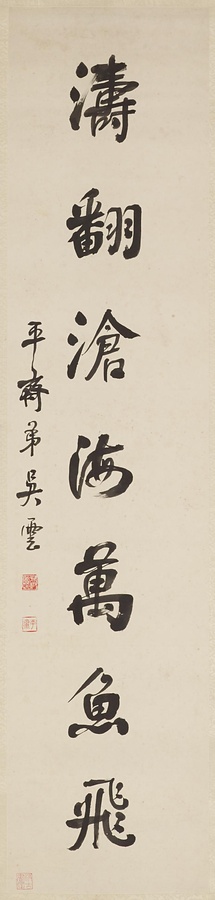 濤翻滄海萬魚飛
平齋弟吳雲